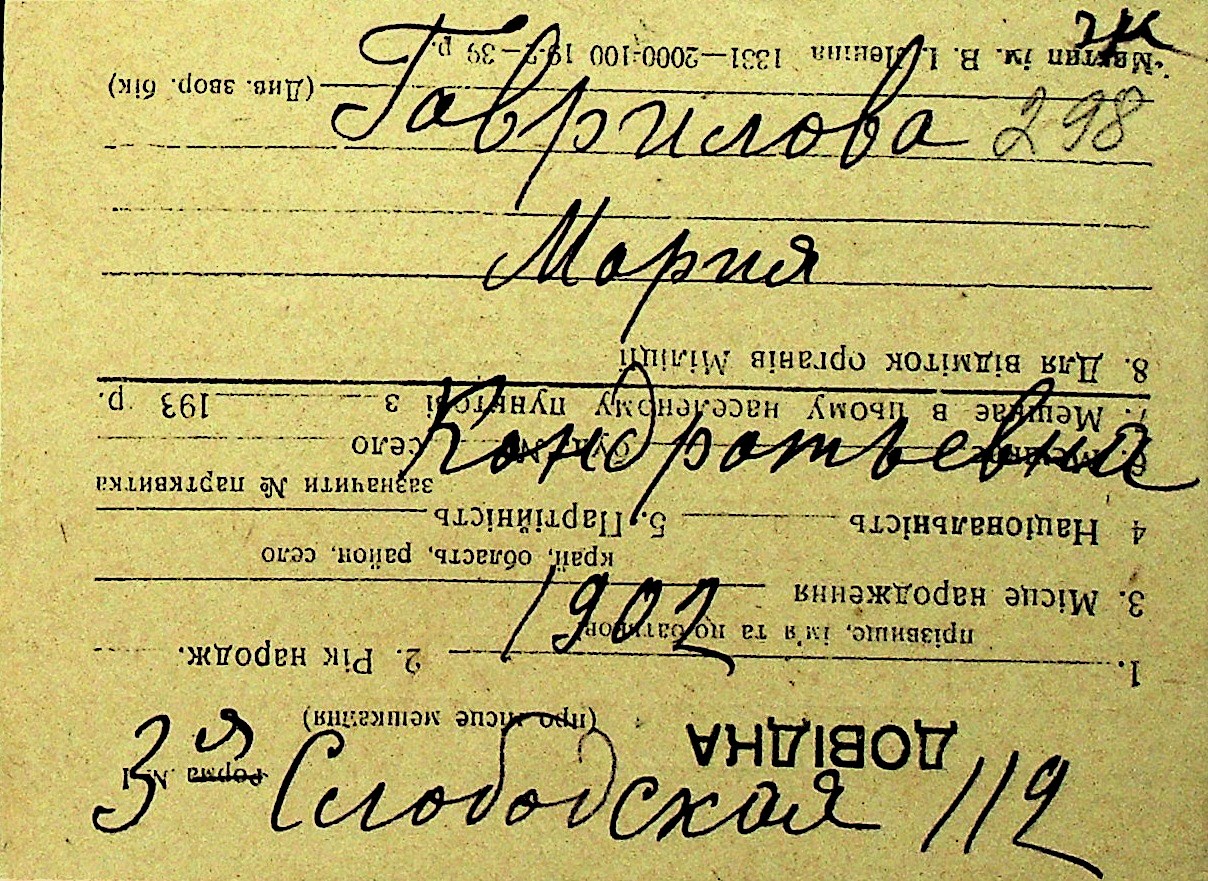 Гаврилова 298
Мария
Кондратьевна
1902
3я Слободская 112
ДОВІДНА
(про місце мешкання)
Форма № 1
1. 2. Рік народж.
прізвище, ім'я та по батькові
3. Місце народження
край, область, район, село
4 Національність 5. Партійність
зазначити № партквитка
село
7. Мешкає в цьому населеному пунктові з 193 р.
8. Для відміток органів Міліції
(Див. звор. бік)
ім. В. І. Леніна 1331—2000×100 39 р.